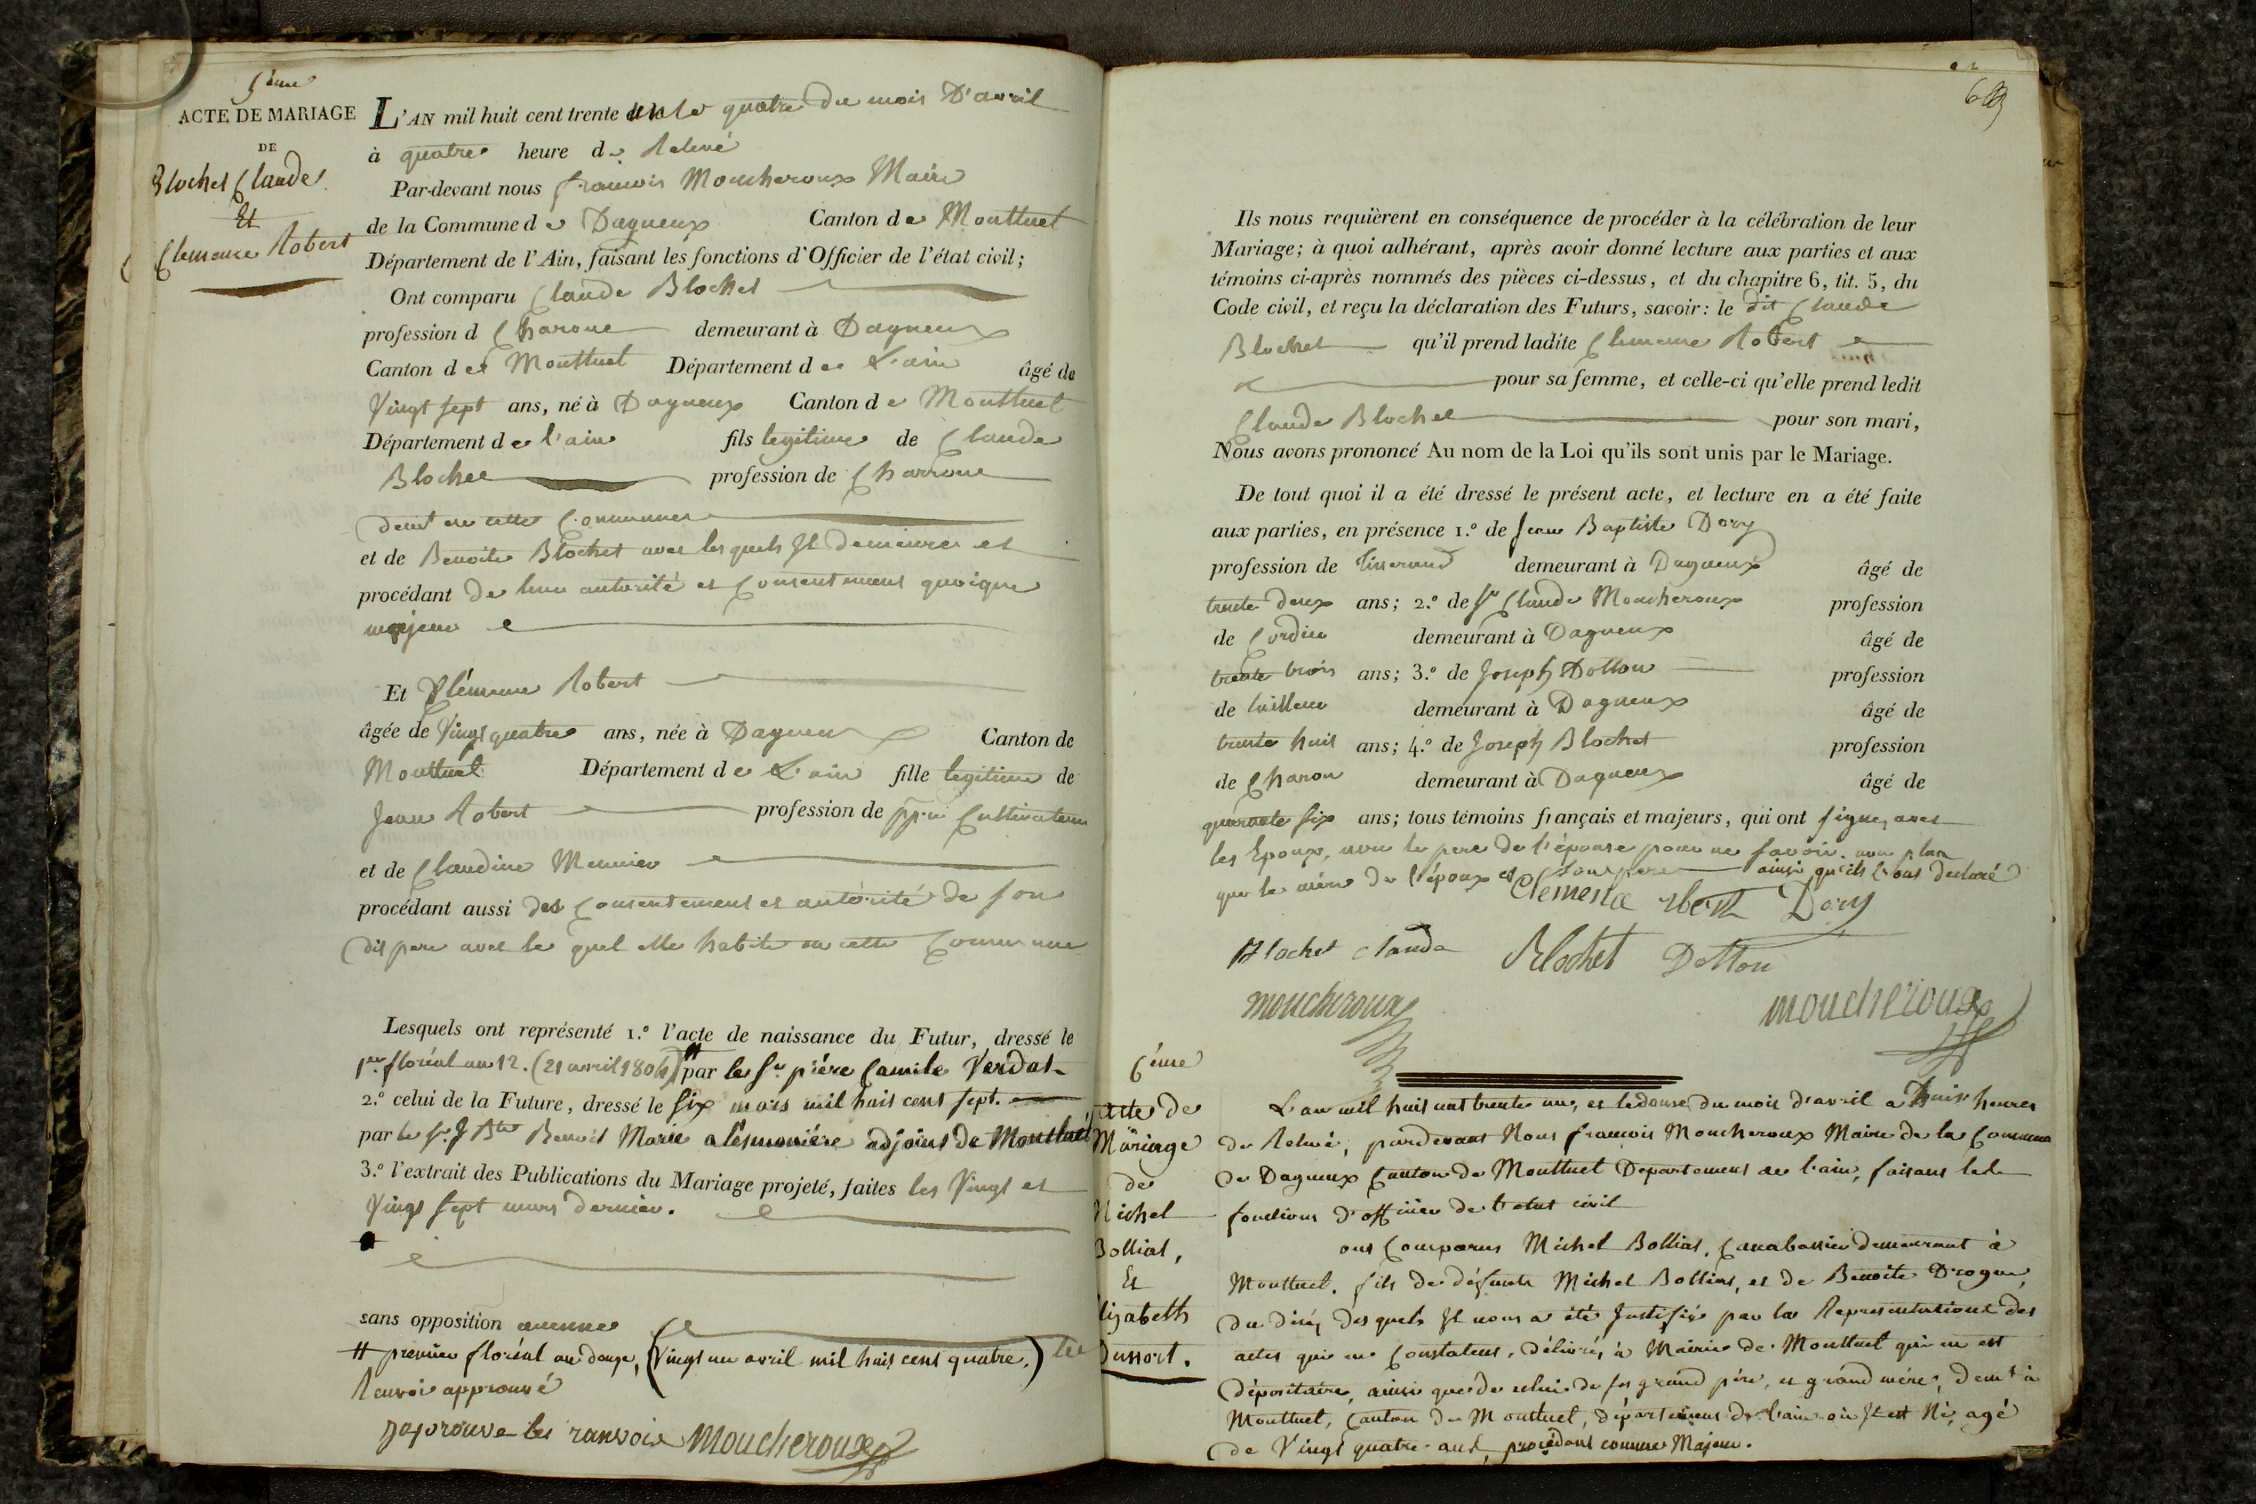 5ème
ACTE DE MARIAGE
DE
Blochet Claude
Et
Clemence Robert
L'AN mil huit cent trente un le quatre du mois D'avril
à quatre heure de Relevé
Par-devant nous françois Moucheroux Maire
de la Commune de Dagneux Canton de Montluel
Département de l'Ain, faisant les fonctions d'Officier de l'état civil;
Ont comparu Claude Blochet
profession d Charone demeurant à Dagneux
Canton de Montluel Département de L'ain âgé de
Vingt sept ans, né à Dagneux Canton de Montluel
Département de l'ain fils legitime de Claude
Blochet profession de Charrone
demt en cette Commune
et de Benoite Blochet avec lesquels Il demeure et
procédant de leur autorité et Consentement quoique
majeur
Et Clémence Robert
âgée de Vingt quatre ans, née à Dagneux Canton de
Montluel Département de L'ain fille legitime de
Jean Robert profession de ppre Cultivateur
et de Claudine Meunier
procédant aussi des Consentement et autorité de son
dit pere avec le quel elle habite en cette Commune
Lesquels ont représenté 1.º l'acte de naissance du Futur, dressé le
1er floréal an 12. (21 avril 1804) # par le Sr piére Camile Verdat
2.º celui de la Future, dressé le six mars mil huit cent sept.
par le Sr J Bte Benoit Marie adjoint de Montluel
3.º l'extrait des Publications du Mariage projeté, faites les Vingt et
Vingt sept mars dernier.
sans opposition aucune
# premier floréal an douze, (Vingt un avril mil huit cent quatre.)
Renvoi approuvé
japrouve les ranvois Moucheroux
Ils nous requièrent en conséquence de procéder à la célébration de leur
Mariage; à quoi adhérant, après avoir donné lecture aux parties et aux
témoins ci-après nommés des pièces ci-dessus, et du chapitre 6, tit. 5, du
Code civil, et reçu la déclaration des Futurs, savoir: le dit Claude
Blochet qu'il prend ladite Clemence Robert
pour sa femme, et celle-ci qu'elle prend ledit
Claude Blochet pour son mari,
Nous avons prononcé Au nom de la Loi qu'ils sont unis par le Mariage.
De tout quoi il a été dressé le présent acte, et lecture en a été faite
aux parties, en présence 1.º de Jean Baptiste Dory
profession de Tisserand demeurant à Dagneux âgé de
trente deux ans; 2.º de Sr Claude Moucheroux profession
de Cordier demeurant à Dagneux âgé de
trente trois ans; 3.º de Joseph Dotton profession
de tailleur demeurant à Dagneux âgé de
trente huit ans; 4.º de Joseph Blochet profession
de Charon demeurant à Dagneux âgé de
quarante six ans; tous témoins français et majeurs, qui ont signé, avec
les Epoux, non le pere de l'épouse pour ne savoir. non plus
que la mére de l'époux et son pere ainsi qu'ils l'ont declaré
Clemensa rbert Dory
Blochet claude Blochet Dotton
moucheroux moucheroux
6ème
acte de
Mariage
de
Michel
Bolliat,
Et
Elizabeth
Dussort.
L'an mil huit cent trente un, et le douze du mois d'avril a huit heures
de Relevé, pardevant Nous francois Moucheroux Maire de la Commune
de Dagneux Canton de Montluel Departement de l'ain, faisant les
fonctions d'officier de l'etat civil
ont Comparus Michel Bolliat, demeurant à
Montluel. fils de défunts Michel Bolliat, et de Benoite Drogue,
du décéz desquels Il nous a été Justifié par la Representations des
actes qui en Constatent, délivrés à Mairie de Montluel qui en est
dépositaire, ainsi que de celui de ses grand pére, et grand mére, demt à
Montluel, Canton de Montluel, département de l'ain où Il est Né, agé
de Vingt quatre ans, procédant comme Majeur.